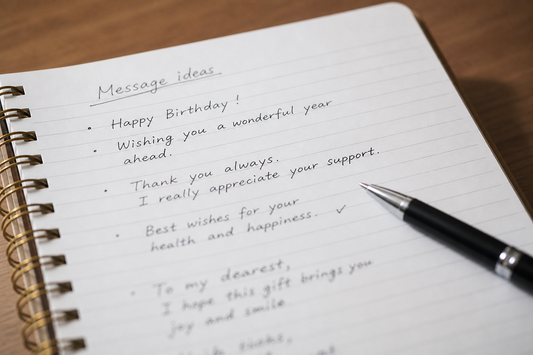 Message ideas
• Happy Birthday !
• Wishing you a wonderful year
ahead.
• Thank you always.
I really appreciate your support.
• Best wishes for your
health and happiness. ✓
• To my dearest,
I hope this gift brings you
joy and smile